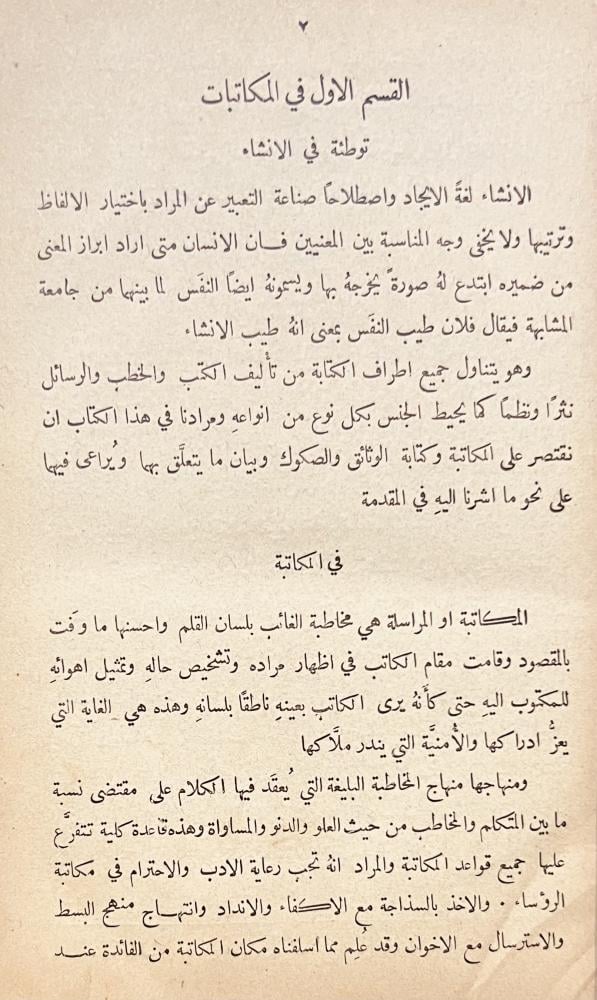 ٧
القسم الاول في المكاتبات
توطئة في الانشاء
الانشاء لغةً الايجاد واصطلاحًا صناعة التعبير عن المراد باختيار الالفاظ
وترتيبها ولا يخفى وجه المناسبة بين المعنيين فان الانسان متى اراد ابراز المعنى
من ضميره ابتدع لهُ صورةً يخرجهُ بها ويسمونهُ ايضًا النفَس لما بينهما من جامعة
المشابهة فيقال فلان طيب النفَس بمعنى انهُ طيب الانشاء
وهو يتناول جميع اطراف الكتابة من تأليف الكتب والخطب والرسائل
نثرًا ونظمًا كما يحيط الجنس بكل نوع من انواعهِ ومرادنا في هذا الكتاب ان
نقتصر على المكاتبة وكتابة الوثائق والصكوك وبيان ما يتعلَّق بهما ويُراعى فيهما
على نحو ما اشرنا اليهِ في المقدمة
في المكاتبة
المكاتبة او المراسلة هي مخاطبة الغائب بلسان القلم واحسنها ما وفَت
بالمقصود وقامت مقام الكاتب في اظهار مراده وتشخيص حالهِ وتمثيل اهوائهِ
للمكتوب اليهِ حتى كأنهُ يرى الكاتب بعينهِ ناطقًا بلسانهِ وهذه هي الغاية التي
يعزُّ ادراكها والأُمنيَّة التي يندر ملَّاكها
ومنهاجها منهاج المخاطبة البليغة التي يُعقَد فيها الكلام على مقتضى نسبة
ما بين المتكلم والمخاطب من حيث العلو والدنو والمساواة وهذه قاعدة كلية تتفرَّع
عليها جميع قواعد المكاتبة والمراد انهُ تجب رعاية الادب والاحترام في مكاتبة
الرؤساء ٠ والاخذ بالسذاجة مع الاكفاء والانداد وانتهاج منهج البسط
والاسترسال مع الاخوان وقد عُلِم مما اسلفناه مكان المكاتبة من الفائدة عند